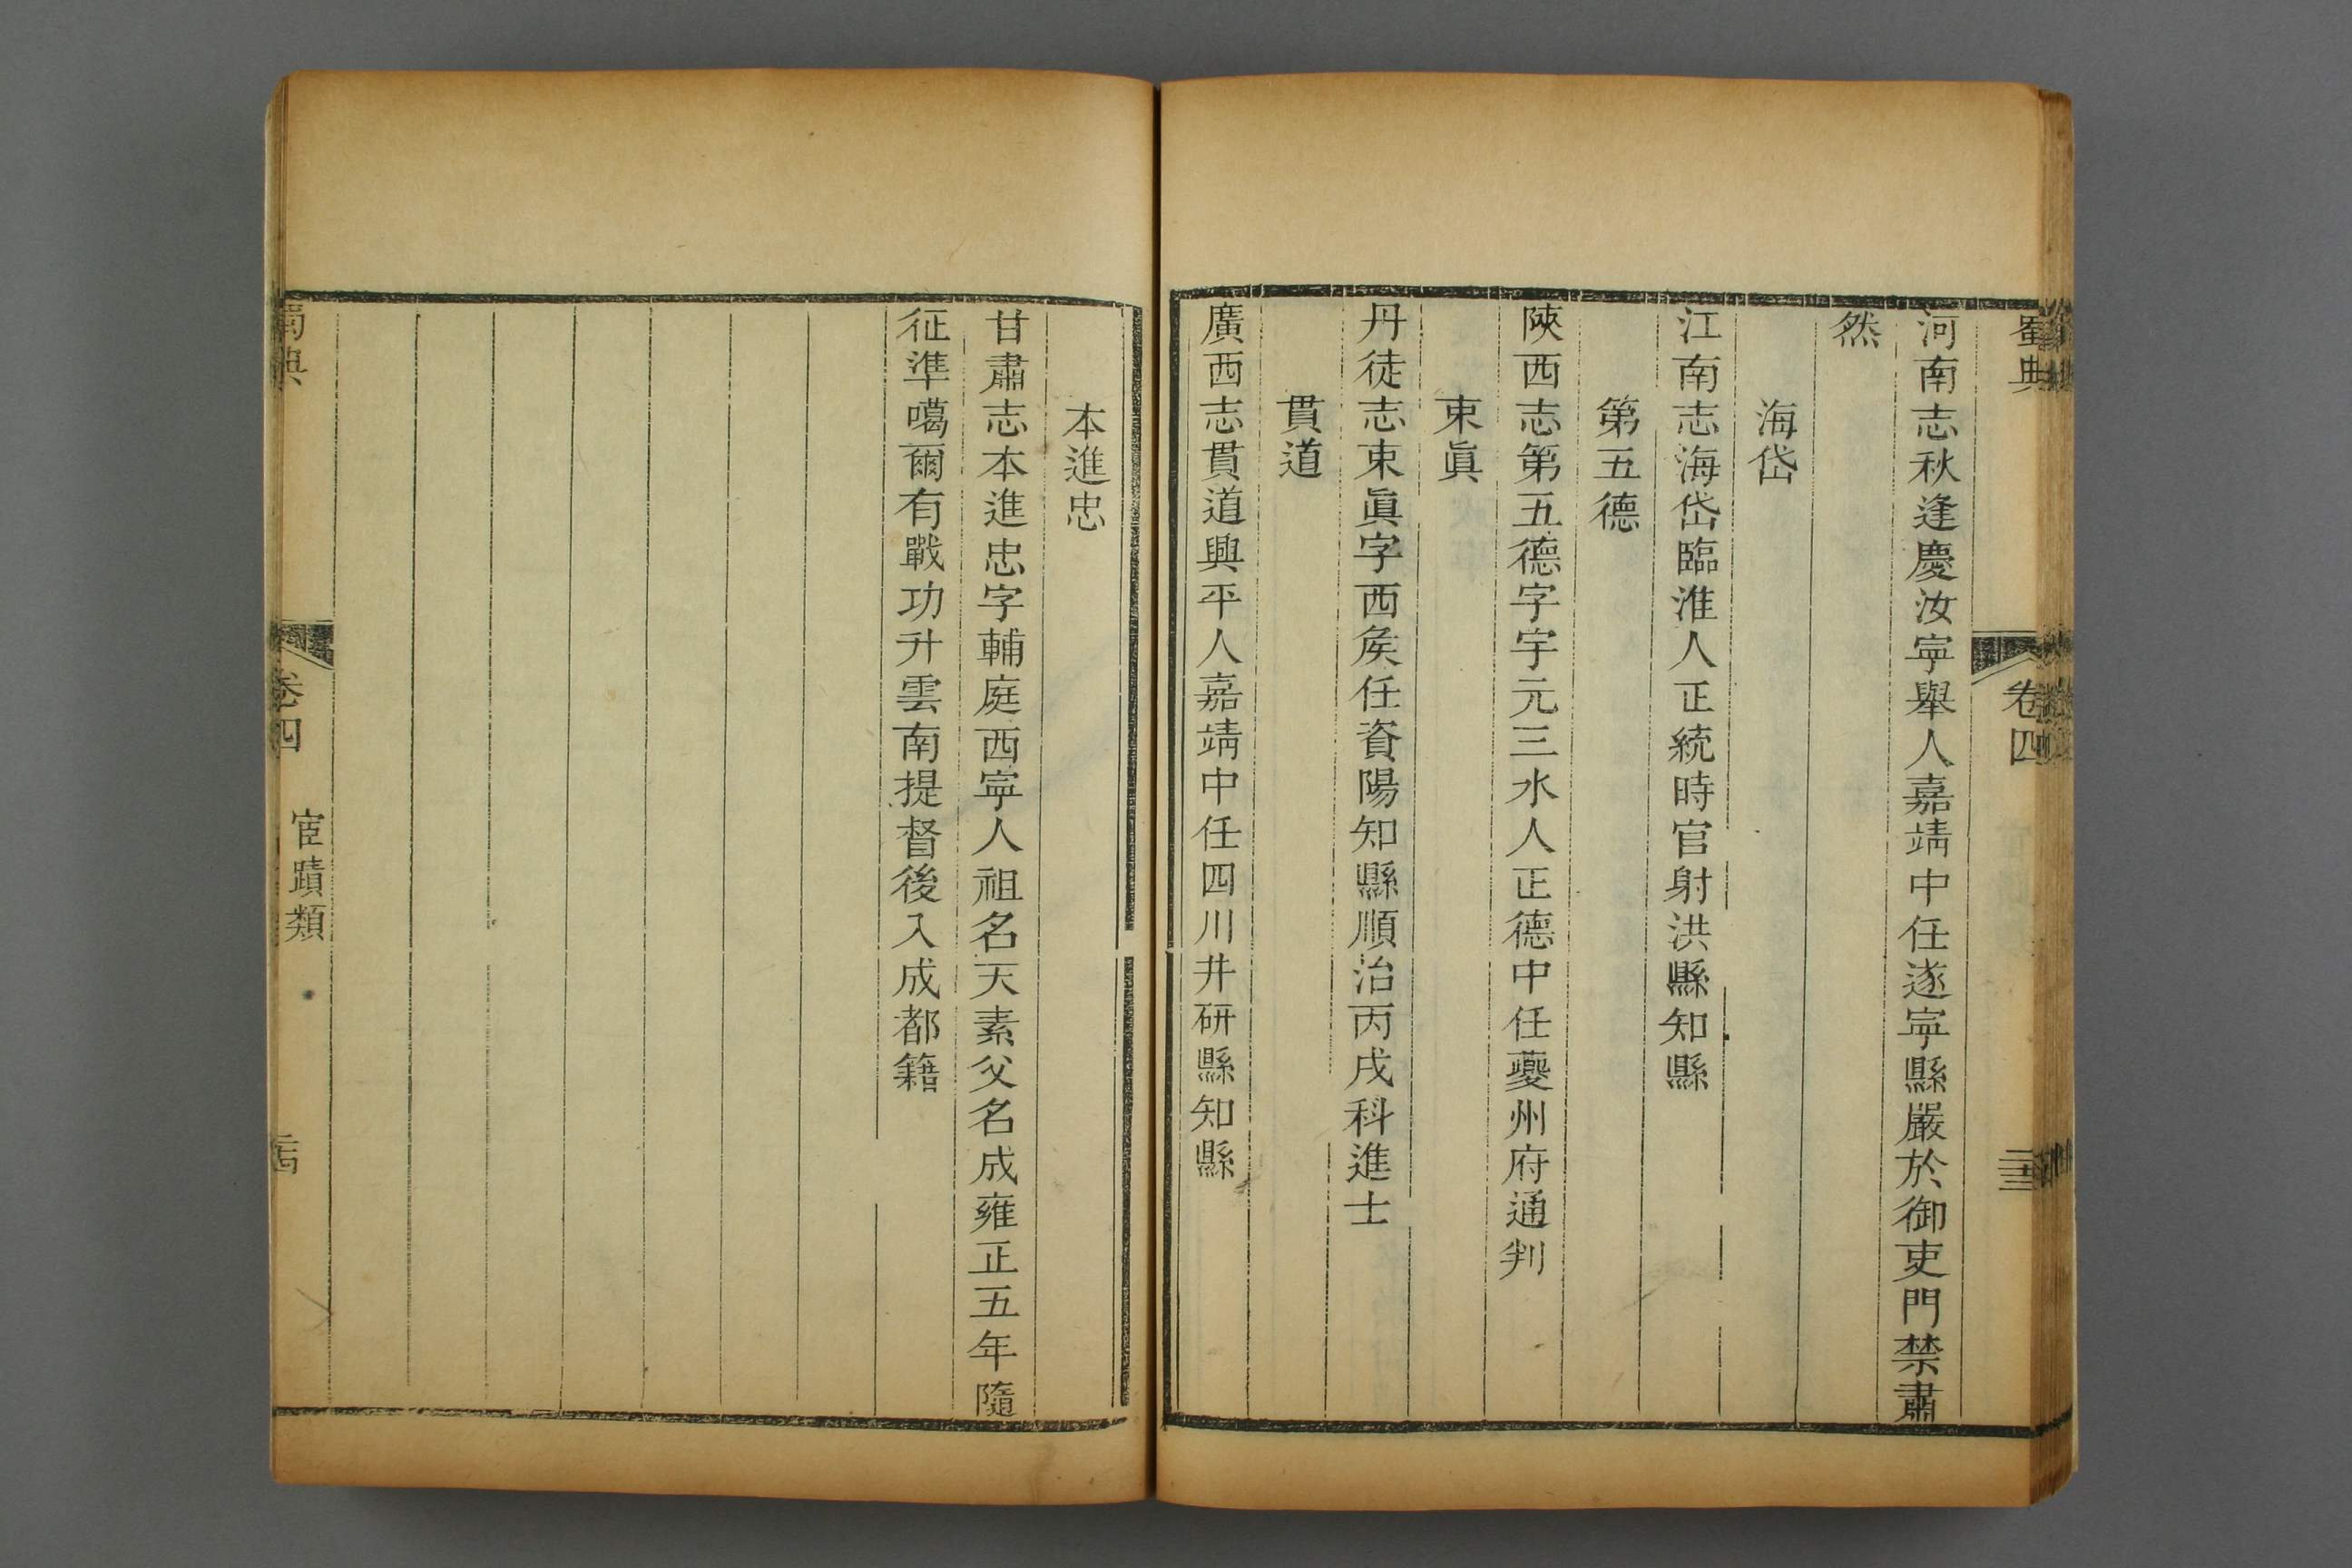 蜀典
卷四
二十三
河南志秋逢慶汝寧舉人嘉靖中任遂寧縣嚴於御吏門禁肅
然
海岱
江南志海岱臨淮人正統時官射洪縣知縣
第五德
陝西志第五德字宇元三水人正德中任夔州府通判
束眞
丹徒志束眞字西矦任資陽知縣順治丙戌科進士
貫道
廣西志貫道興平人嘉靖中任四川井研縣知縣
本進忠
甘肅志本進忠字輔庭西寧人祖名天素父名成雍正五年隨
征準噶爾有戰功升雲南提督後入成都籍
蜀典
卷四
宦蹟類